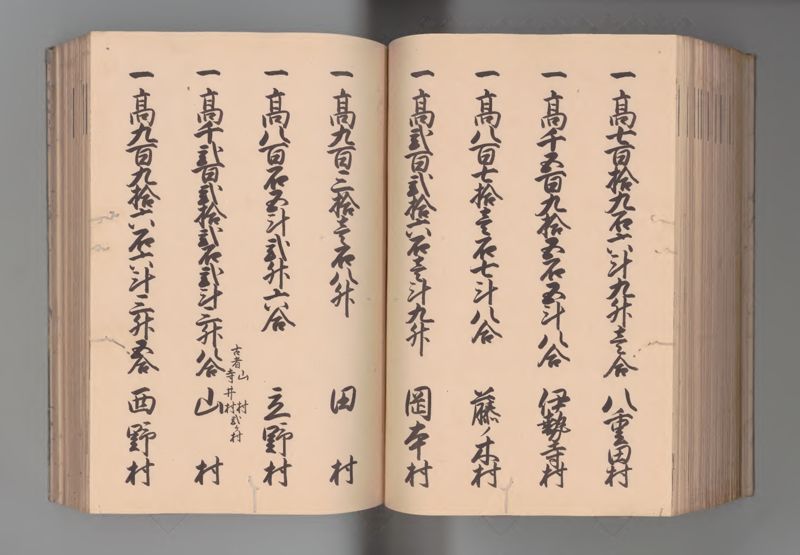 一高七百拾九石六斗九升壱合 八重田村
一高千五百九拾五石五斗八合 伊勢寺村
一高八百七拾壱石七斗八合 藤ノ木村
一高弐百弐拾六石壱斗九升 岡本村
一高九百三拾壱石八升 田村
一高八百石五斗弐升六合 立野村
一高千弐百弐拾弐石弐斗三升八合 山村
古者山村
寺井村弐ヶ村
一高九百九拾六石六斗三升五合 西野村